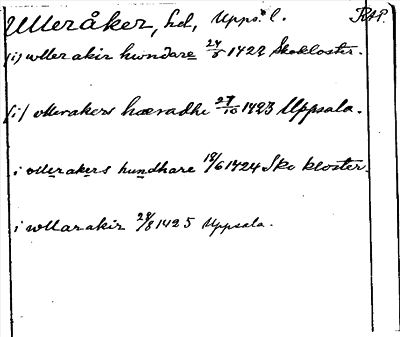 Ulleråker, hd, Upps. l. RAP.
(i) wllerakir hwndare 24/5 1422 Skokloster.
(i) vllerakers hæradhe 27/10 1423 Uppsala.
i vllerakers hundhare 18/6 1424 Sko kloster.
i wllarakir 28/8 1425 Uppsala.